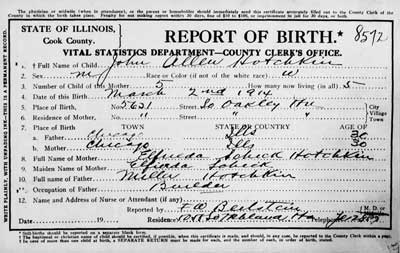 The physician or midwife (when in attendance), or the parent or householder should immediately send this certificate accurately filled out to the County Clerk of the County in which the birth takes place. Penalty for not making report within 30 days, fine of $10 to $100, or imprisonment in jail for 30 days, or both.
STATE OF ILLINOIS,
Cook County.
REPORT OF BIRTH.* 8572
VITAL STATISTICS DEPARTMENT—COUNTY CLERK'S OFFICE.
1. † Full Name of Child John Allen Hotchkin
2. Sex m Race or Color (if not of the white race) w
3. Number of Child of this Mother 5 How many now living (in all) 5
4. Date of this Birth March 2nd 1914
5. Place of Birth, No. 5621 Street So Oakley Ave
6. Residence of Mother, No. " Street " "
City
Village
Town
7. Place of Birth TOWN STATE OR COUNTRY AGE OF
a. Father Chicago Ills 30
b. Mother Chicago Ills 30
8. Full Name of Mother Hotchkin
9. Maiden Name of Mother
10. Full name of Father Hotchkin
11. Occupation of Father Builder
12. Name and Address of Nurse or Attendant (if any)
Reported by F W Beilstein M. D. or
Date, 19 Residence Telephone
WRITE PLAINLY, WITH UNFADING INK—THIS IS A PERMANENT RECORD.
* Still-births should be reported on a separate blank form.
† The baptismal or christian name of child should be certified, if possible, when this certificate is made, and should, in any case, be reported to the County Clerk within a year.
‡ In case of more than one child at birth, a SEPARATE RETURN must be made for each, and the number of each, in order of birth, stated.